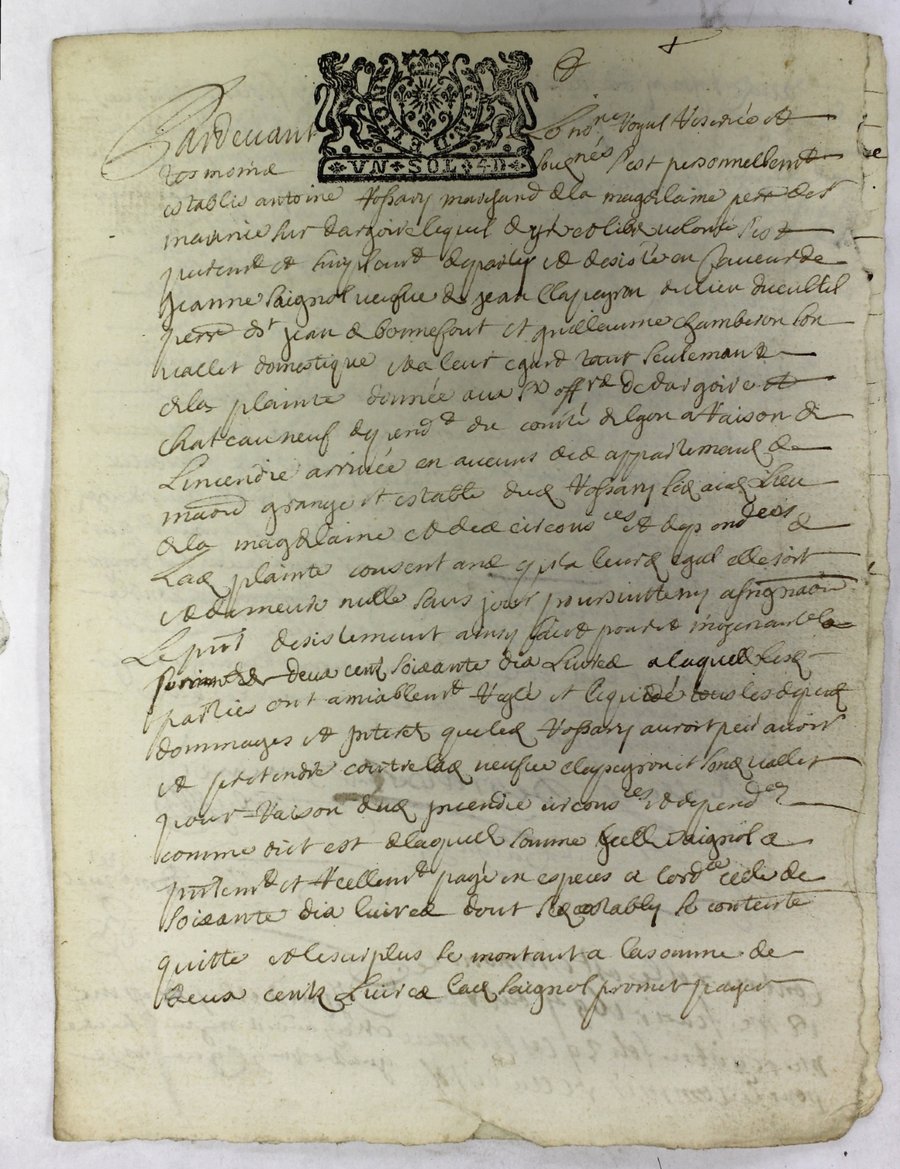 GEND E LION
VN · SOL · 4D
Pardevant Le no.re Royal reservé et
tesmoins soubsignés s'est personnellem.t
establis antoine marchand de la magdelaine per.sse de s.t
maurice sur dargoire lequel de gré et libre volonté s'est
purem.t et simplem.t departis et desisté en faveur de
Jeanne Saignol veufve de jean Clapeyron du lieu
perr.sse de s.t jean de bonnefont et guillaume chamberon son
vallet domestique et a leur egard tout seulemant
de la plainte donnée aux s.rs off.rs de dargoire et
chateauneuf depend.t du comté de lyon a raison de
L'incendie arrivée en aucuns des appartemens de
maison grange et estable dud. sis aud. Lieu
de la magdelaine et de ses circons.ces et dependences de
Lad. plainte consentant qu'a leurd. egal elle soit
et demeure nulle sans pour poursuitte ny assignaon
Le pnt desistement ainsy fait pour et moyenant la
somme de deux cent soixante dix Livres a laquelle lesd.
parties ont amiablem.t reglé et liquidé tous les depens
dommages et interet que led. auroit peu avoir
et pretendre contre lad. veufve clapeyron et sond. vallet
pour raison dud. incendie circons.ces et depend.ces
comme dict est de laquelle somme lad. Saignol a
pntem.t et reellem.t payé en especes a celle de
soixante dix livres dont led. estably se contente
quitte et le surplus se montant a la somme de
deux cents Livres lad. Saignol promet payer